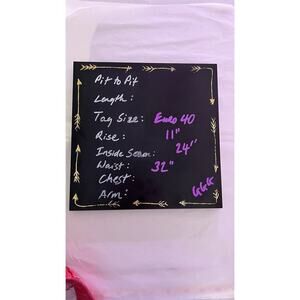 Pit to Pit
Length:
Tag Size: Euro 40
Rise: 11"
Inside Seam: 24"
Waist: 32"
Chest:
Arm: GGG